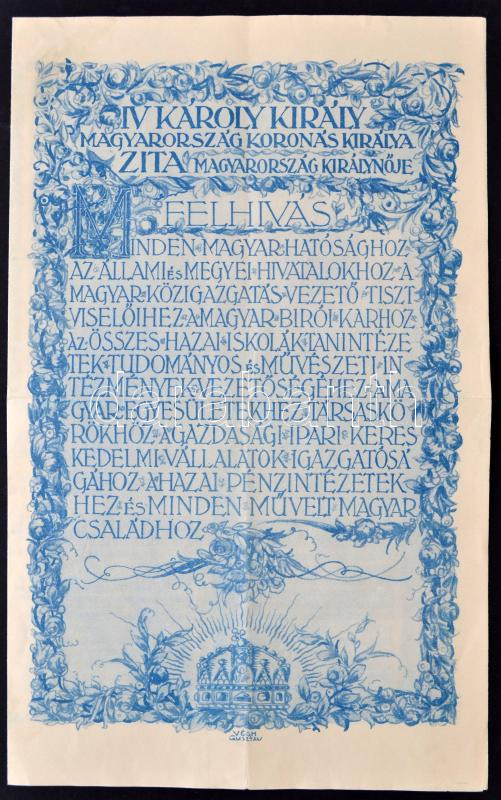 IV KÁROLY KIRÁLY
MAGYARORSZÁG KORONÁS KIRÁLYA
ZITA MAGYARORSZÁG KIRÁLYNŐJE
FELHÍVÁS
MINDEN MAGYAR HATÓSÁGHOZ
AZ ÁLLAMI ÉS MEGYEI HIVATALOKHOZ A
MAGYAR KÖZIGAZGATÁS VEZETŐ TISZT
VISELŐIHEZ A MAGYAR BIRÓI KARHOZ
AZ ÖSSZES HAZAI ISKOLÁK TANINTÉZE
TEK TUDOMÁNYOS ÉS MŰVÉSZETI IN
TÉZMÉNYEK VEZETŐSÉGÉHEZ A MA
GYAR EGYESÜLETEKHEZ TÁRSASKÖ
RÖKHÖZ A GAZDASÁGI IPARI KERES
KEDELMI VÁLLALATOK IGAZGATÓSÁ
GÁHOZ A HAZAI PÉNZINTÉZETEK
HEZ ÉS MINDEN MŰVELT MAGYAR
CSALÁDHOZ
VÉGH
GUSZTÁV
darabanth